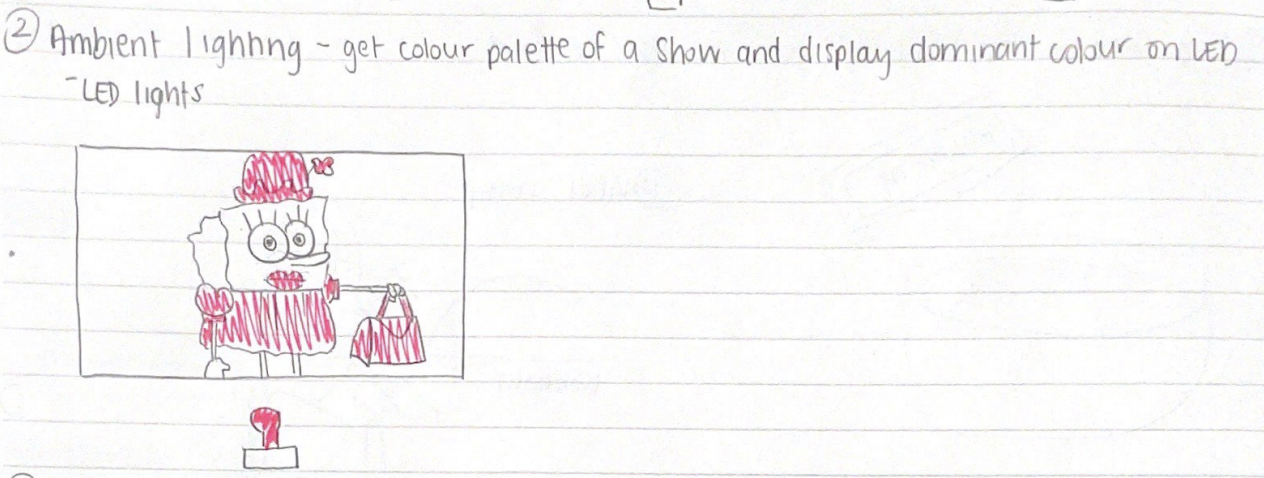 ② Ambient lighting - get colour palette of a show and display dominant colour on LED
- LED lights